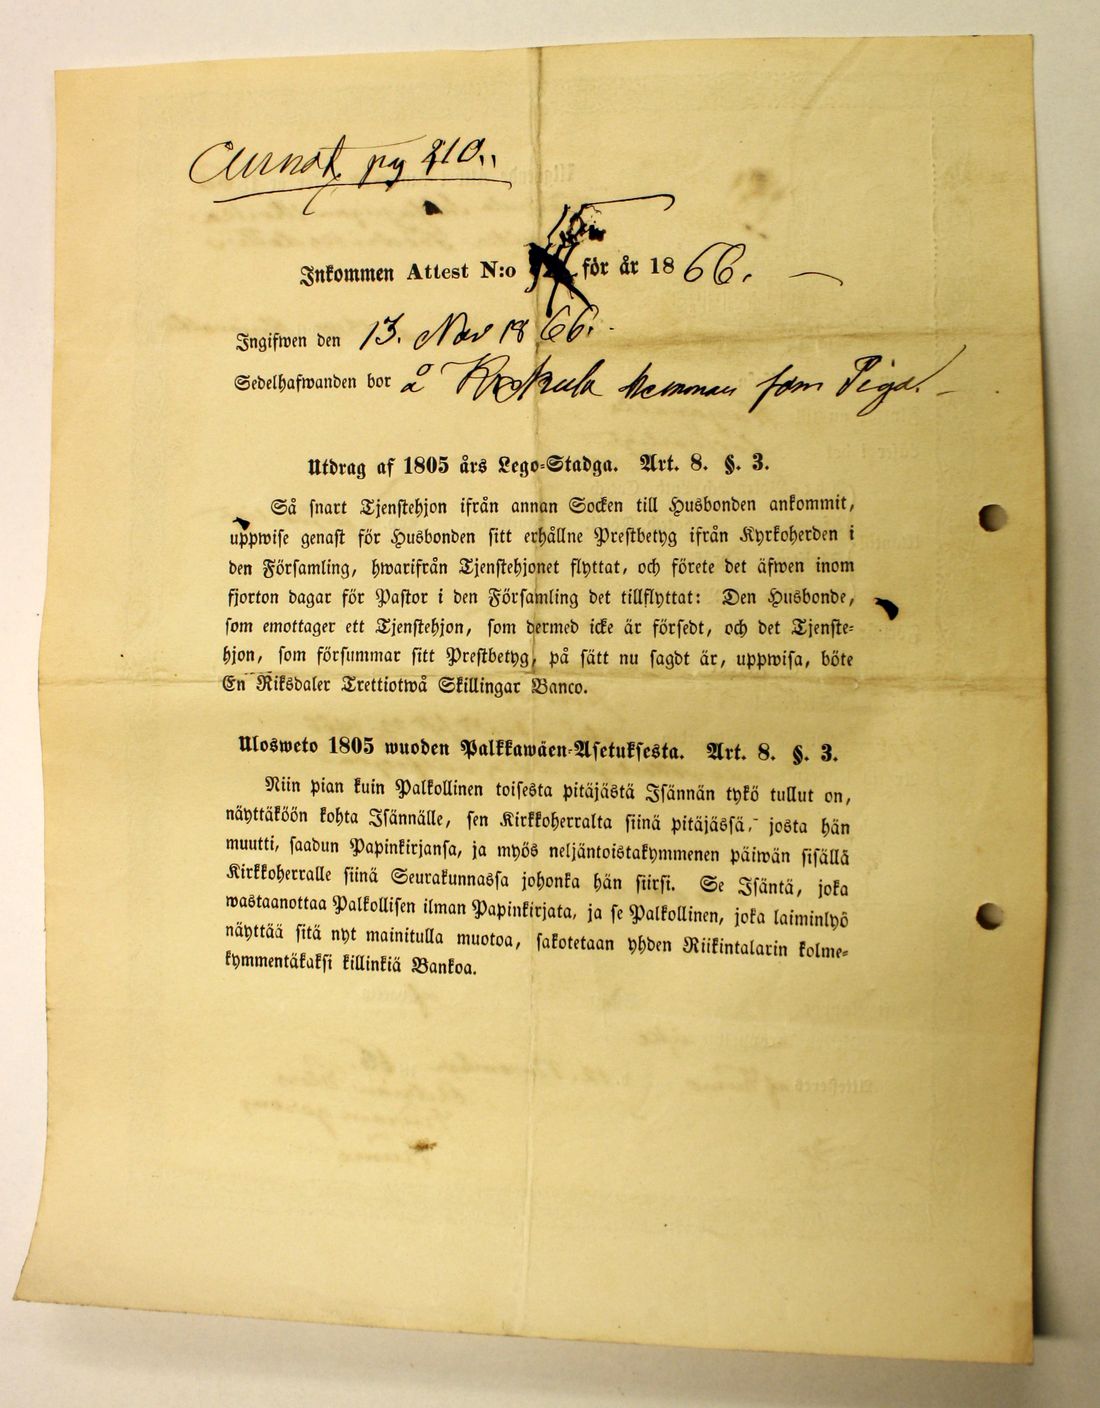 pag 210.
Inkommen Attest N:o för år 1866.
Ingifwen den 13. Nov 1866.
Sedelhafwanden bor å som Piga.
Utdrag af 1805 års Lego-Stadga. Art. 8. §. 3.
Så snart Tjenstehjon ifrån annan Socken till Husbonden ankommit,
uppwise genast för Husbonden sitt erhållne Prestbetyg ifrån Kyrkoherden i
den Församling, hwarifrån Tjenstehjonet flyttat, och förete det äfwen inom
fjorton dagar för Pastor i den Församling det tillflyttat: Den Husbonde,
som emottager ett Tjenstehjon, som dermed icke är försedt, och det Tjenste-
hjon, som försummar sitt Prestbetyg, på sätt nu sagdt är, uppwisa, böte
En Riksdaler Trettiotwå Skillingar Banco.
Ulosweto 1805 wuoden Palkkawäen-Asetuksesta. Art. 8. §. 3.
Niin pian kuin Palkollinen toisesta pitäjästä Isännän tykö tullut on,
näyttäköön kohta Isännälle, sen Kirkkoherralta siinä pitäjässä, josta hän
muutti, saadun Papinkirjansa, ja myös neljäntoistakymmenen päiwän sisällä
Kirkkoherralle siinä Seurakunnassa johonka hän siirsi. Se Isäntä, joka
wastaanottaa Palkollisen ilman Papinkirjata, ja se Palkollinen, joka laiminlyö
näyttää sitä nyt mainitulla muotoa, sakotetaan yhden Riikintalarin kolme-
kymmentäkaksi killinkiä Bankoa.